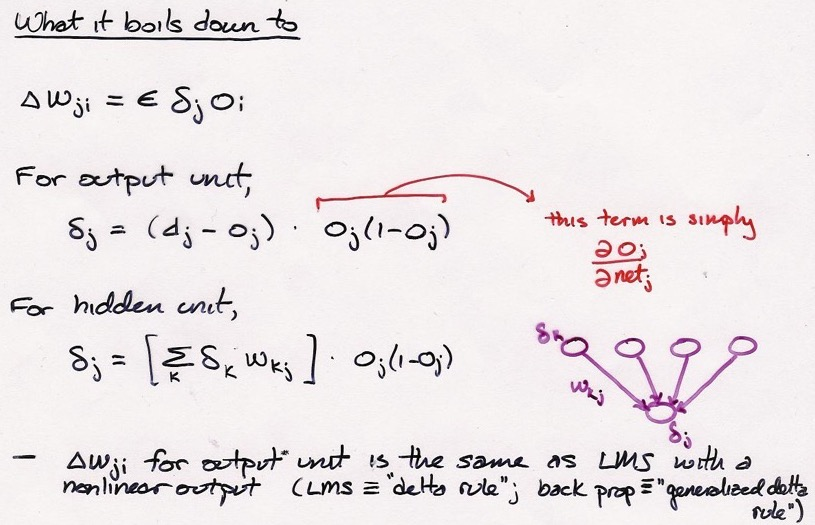 What it boils down to
Δw_ji = ϵ δ_j o_i
For output unit,
δ_j = (d_j - o_j) · o_j(1-o_j)
this term is simply
∂o_j
∂net_j
For hidden unit,
δ_j = [Σ_k δ_k w_kj] · o_j(1-o_j)
δ_k
w_kj
δ_j
- Δw_ji for output unit is the same as LMS with a
nonlinear output (LMS ≡ "delta rule"; back prop ≡ "generalized delta
rule")